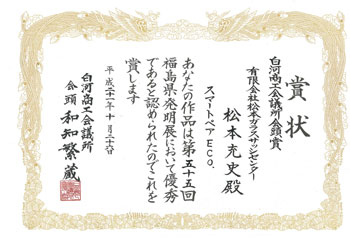 賞状
白河商工会議所会頭賞
有限会社松本ガラスサンセンター
松本充史殿
スマートペアECO.
あなたの作品は第五十五回
福島県発明展において優秀
であると認められたのでこれを
賞します
平成二十一年十月二十六日
白河商工会議所
会頭 和知繁蔵